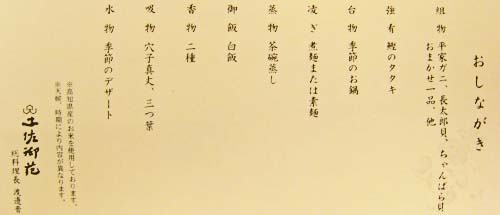 おしながき
組物 平家ガニ、長太郎貝、ちゃんばら貝
おまかせ一品、他
強肴 鰹のタタキ
台物 季節のお鍋
凌ぎ 煮麺または素麺
蒸物 茶碗蒸し
御飯 白飯
香物 二種
吸物 穴子真丈、三つ葉
水物 季節のデザート
※高知県産のお米を使用しております。
※天候、時期により内容が異なります。
土佐御苑
総料理長 渡邉香